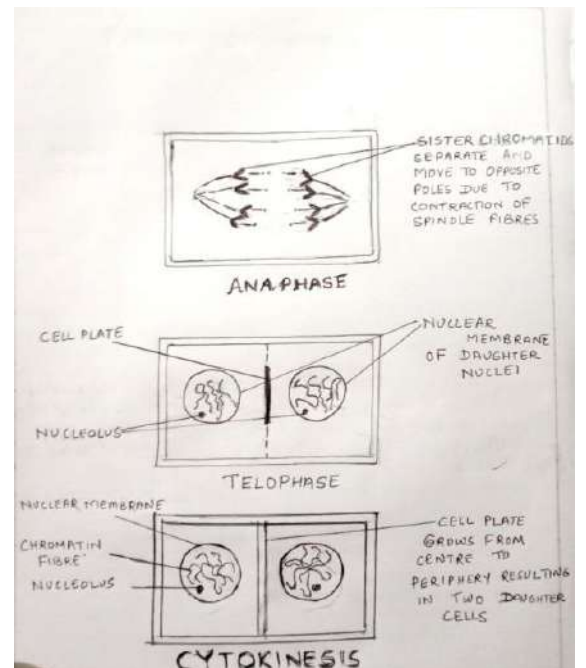 SISTER CHROMATIDS
SEPARATE AND
MOVE TO OPPOSITE
POLES DUE TO
CONTRACTION OF
SPINDLE FIBRES
ANAPHASE
CELL PLATE
NUCLEAR
MEMBRANE
OF DAUGHTER
NUCLEI
NUCLEOLUS
TELOPHASE
NUCLEAR MEMBRANE
CHROMATIN
FIBRE
NUCLEOLUS
CELL PLATE
GROWS FROM
CENTRE TO
PERIPHERY RESULTING
IN TWO DAUGHTER
CELLS
CYTOKINESIS